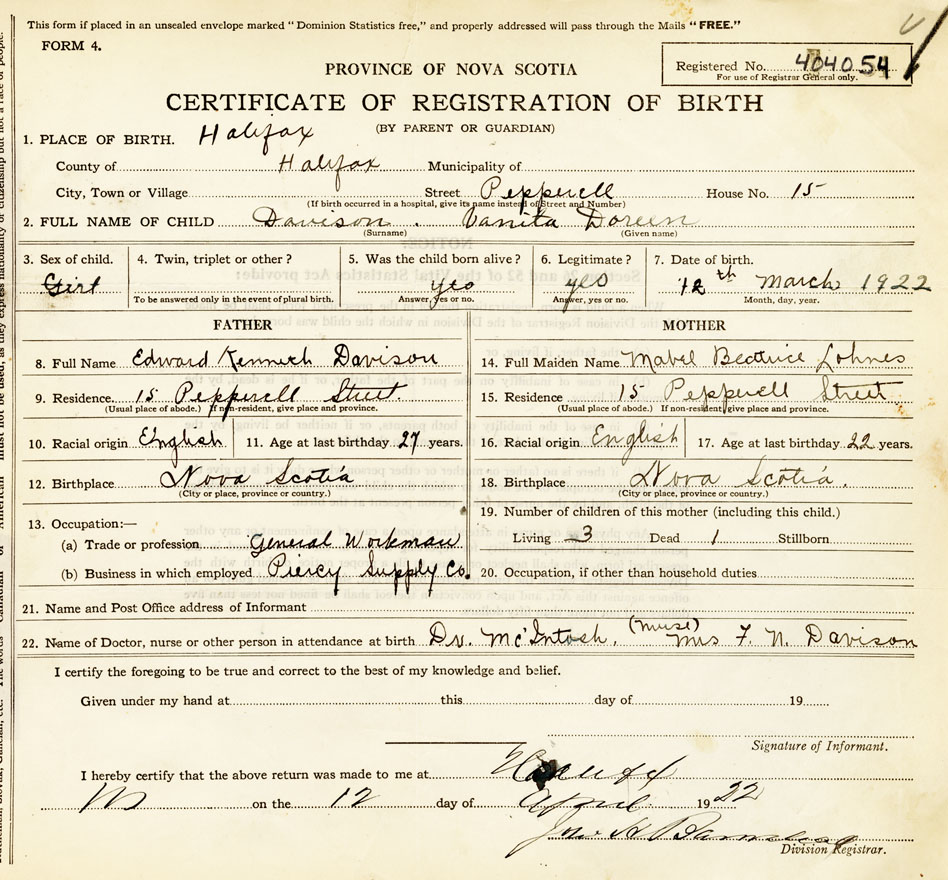 This form if placed in an unsealed envelope marked "Dominion Statistics free," and properly addressed will pass through the Mails "FREE."
FORM 4.
Registered No. 404054
For use of Registrar General only.
PROVINCE OF NOVA SCOTIA
CERTIFICATE OF REGISTRATION OF BIRTH
(BY PARENT OR GUARDIAN)
1. PLACE OF BIRTH. Halifax
County of Halifax Municipality of
City, Town or Village Street Pepperell House No. 15
(If birth occurred in a hospital, give its name instead of Street and Number)
2. FULL NAME OF CHILD Davison. Vanita Doreen
(Surname) (Given name)
3. Sex of child. 4. Twin, triplet or other? 5. Was the child born alive? 6. Legitimate? 7. Date of birth.
Girl yes yes 12th March 1922
To be answered only in the event of plural birth. Answer, yes or no. Answer, yes or no. Month, day, year.
FATHER MOTHER
8. Full Name Edward Kenneth Davison 14. Full Maiden Name Mabel Beatrice Lohnes
9. Residence 15 Pepperell Street. 15. Residence 15 Pepperell Street
(Usual place of abode.) If non-resident, give place and province. (Usual place of abode.) If non-resident, give place and province.
10. Racial origin English 11. Age at last birthday 27 years. 16. Racial origin English 17. Age at last birthday 22 years.
12. Birthplace Nova Scotia 18. Birthplace Nova Scotia.
(City or place, province or country.) (City or place, province or country.)
13. Occupation:— 19. Number of children of this mother (including this child.)
(a) Trade or profession General Workman Living 3 Dead 1 Stillborn
(b) Business in which employed Piercy Supply Co. 20. Occupation, if other than household duties
21. Name and Post Office address of Informant
22. Name of Doctor, nurse or other person in attendance at birth Dr. McIntosh. (nurse) Mrs F. N. Davison
I certify the foregoing to be true and correct to the best of my knowledge and belief.
Given under my hand at this day of 19
Signature of Informant.
I hereby certify that the above return was made to me at Halifax
on the 12 day of April 1922
Division Registrar.